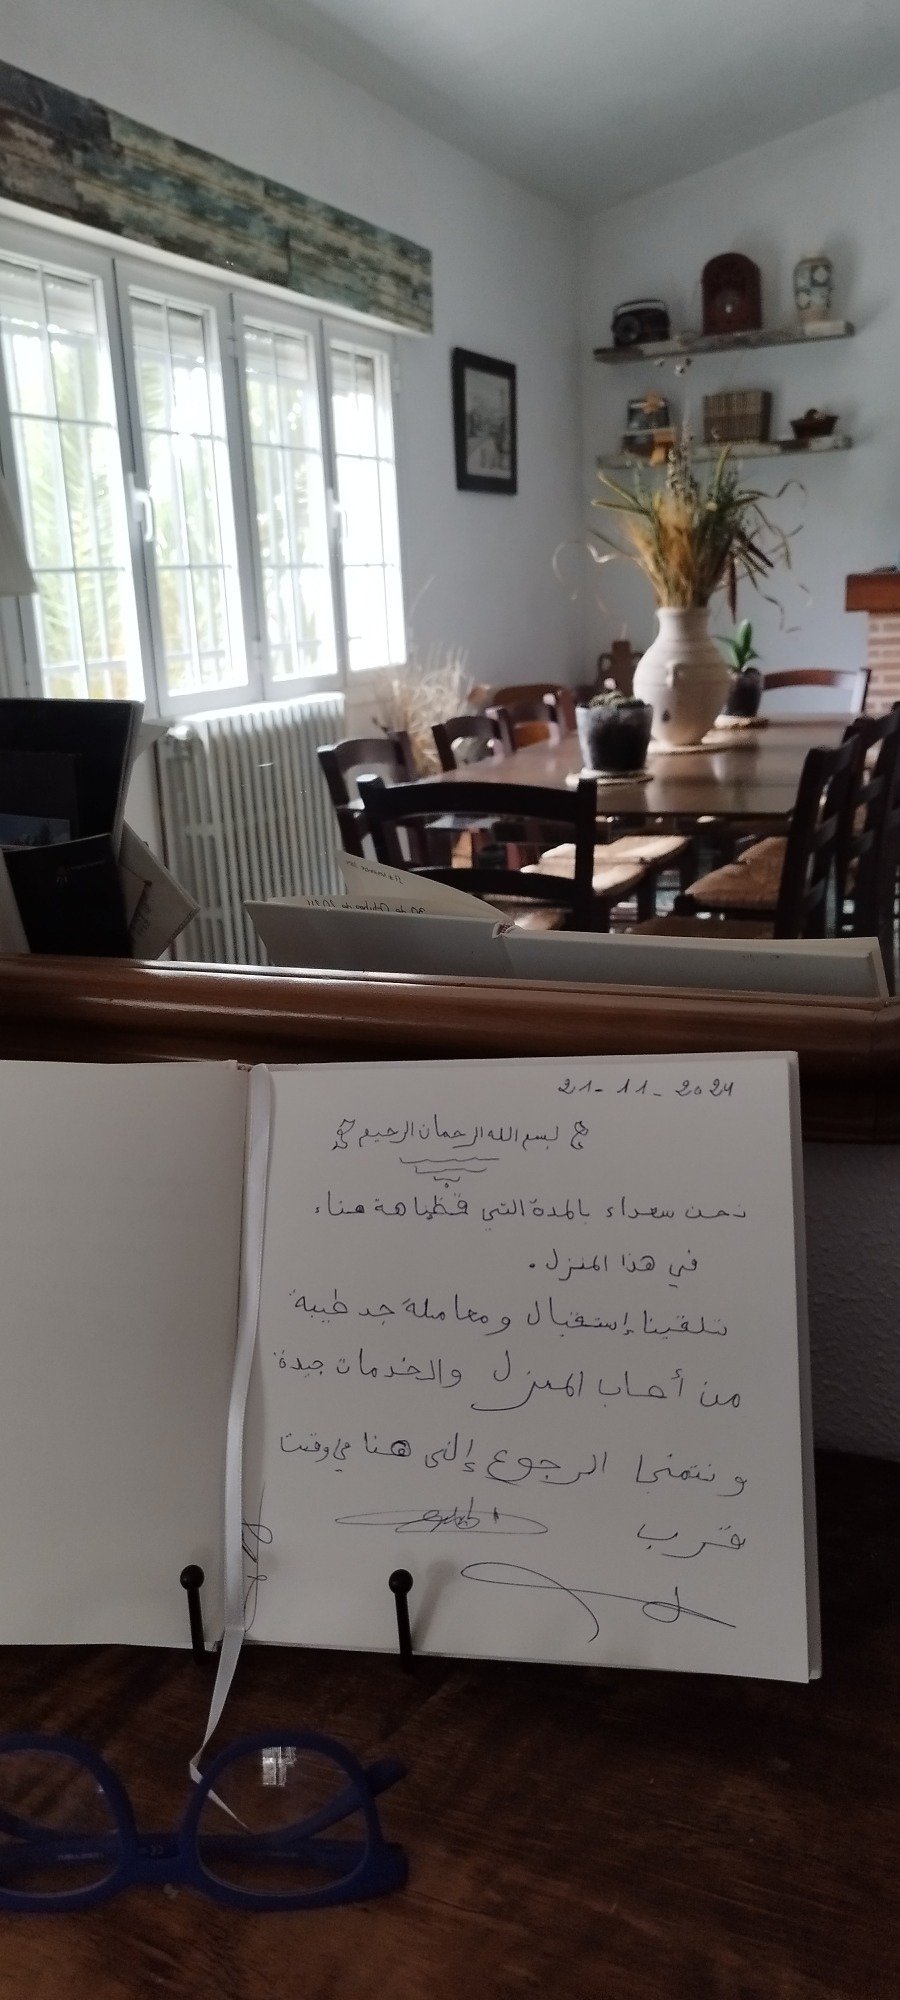 21-11-2024
بسم الله الرحمان الرحيم
نحن سعداء بالمدة التي قظياهة هناء
في هذا المنزل.
تلقينا إستقبال ومعاملة جد طيبة
من أصاب المنزل والخدمات جيدة
و نتمنى الرجوع إلى هنا في وقت
قرب